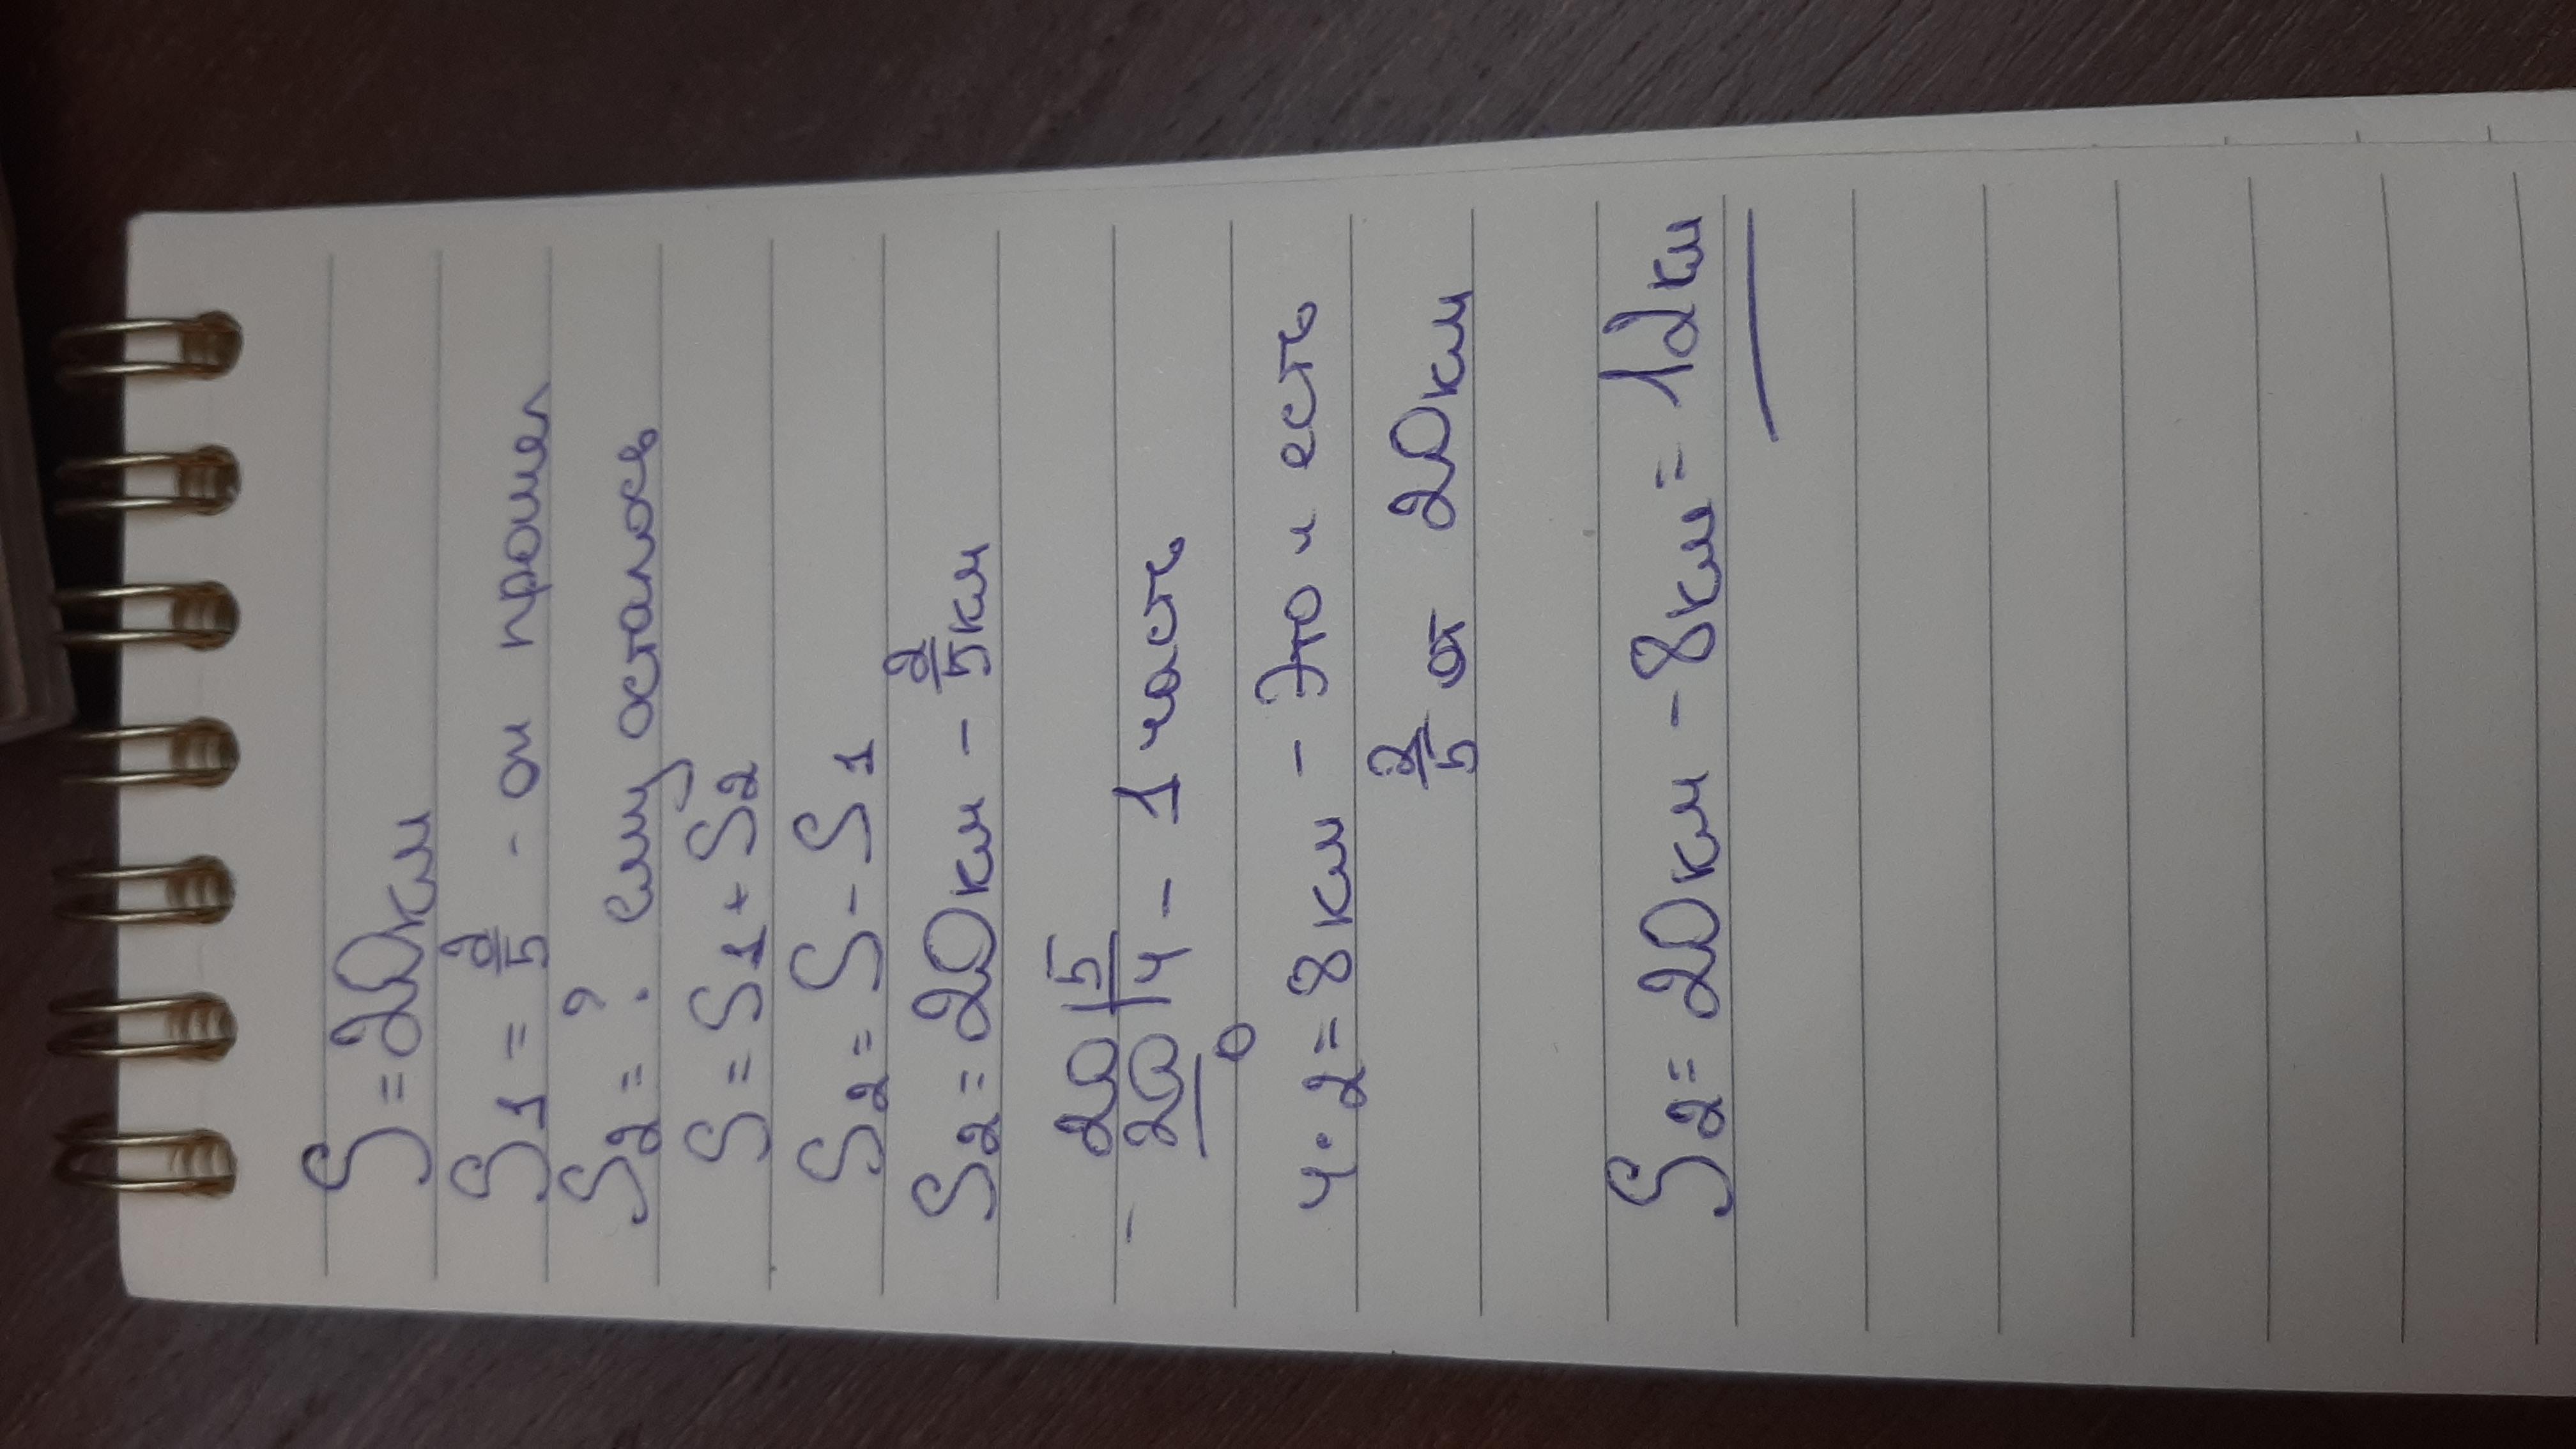 S = 20км
S₁ = 2/5 - он прошел
S₂ = ? ему осталось
S = S₁ + S₂
S₂ = S - S₁
S₂ = 20км - 2/5 км
- 20 | 5
20 | 4 - 1 часть
0
4 · 2 = 8 км - Это и есть
2/5 от 20км
S₂ = 20км - 8км = 12км